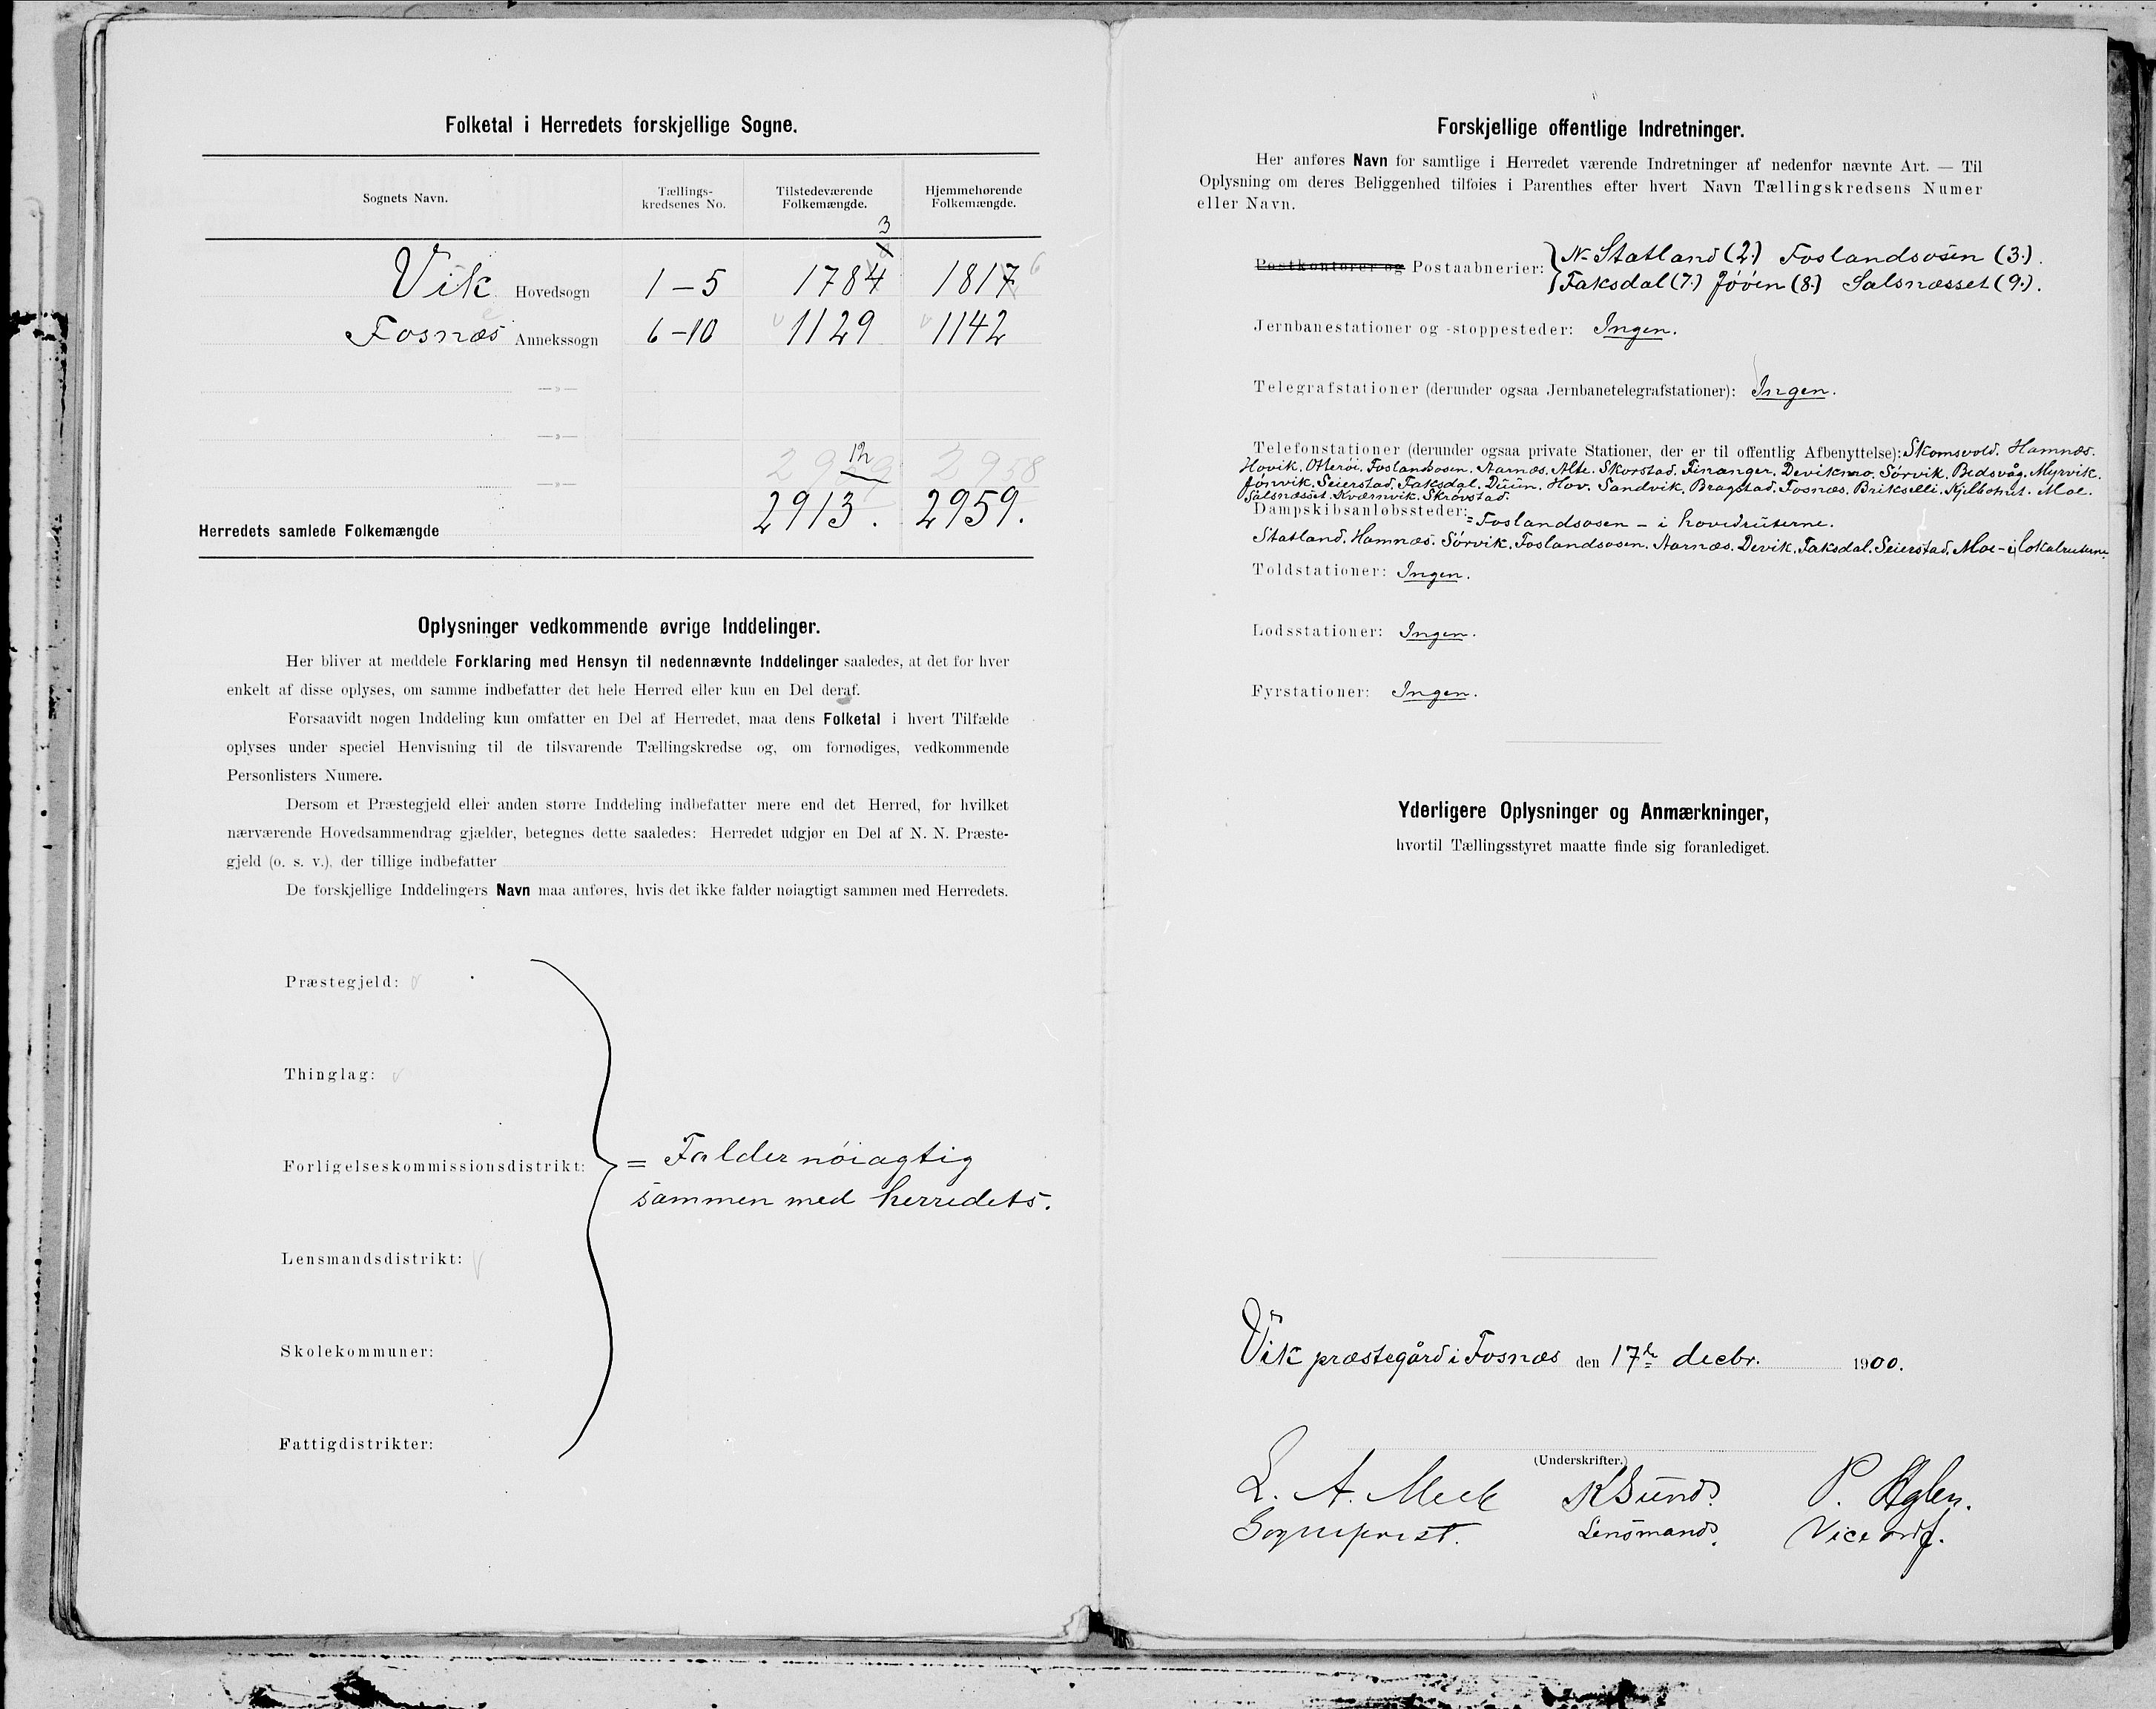 Folketal i Herredets forskjellige Sogne.
Sognets Navn.
Tællings-
kredsenes No.
Tilstedeværende
Folkemængde.
Hjemmehørende
Folkemængde.
3
Vik Hovedsogn 1-5 1784 1817 6
Fosnæs Annekssogn 6-10 1129 1142
—»—
—»—
12
2958
—»—
2913. 2959.
Herredets samlede Folkemængde
Oplysninger vedkommende øvrige Inddelinger.
Her bliver at meddele Forklaring med Hensyn til nedennævnte Inddelinger saaledes, at det for hver
enkelt af disse oplyses, om samme indbefatter det hele Herred eller kun en Del deraf.
Forsaavidt nogen Inddeling kun omfatter en Del af Herredet, maa dens Folketal i hvert Tilfælde
oplyses under speciel Henvisning til de tilsvarende Tællingskredse og, om fornødiges, vedkommende
Personlisters Numere.
Dersom et Præstegjeld eller anden større Inddeling indbefatter mere end det Herred, for hvilket
nærværende Hovedsammendrag gjælder, betegnes dette saaledes: Herredet udgjør en Del af N. N. Præste-
gjeld (o. s. v.), der tillige indbefatter
De forskjellige Inddelingers Navn maa anføres, hvis det ikke falder nøiagtigt sammen med Herredets.
Præstegjeld:
Thinglag:
Forligelseskommissionsdistrikt: = Falder nöiagtig
sammen med herredets.
Lensmandsdistrikt:
Skolekommuner:
Fattigdistrikter:
Forskjellige offentlige Indretninger.
Her anføres Navn for samtlige i Herredet værende Indretninger af nedenfor nævnte Art. — Til
Oplysning om deres Beliggenhed tilføies i Parenthes efter hvert Navn Tællingskredsens Numer
eller Navn.
N-Statland (2.) Foslandsosen (3.).
Postkontorer og Postaabnerier:
Faksdal (7.) Jøøen (8.) Salsnæsset (9.).
Jernbanestationer og -stoppesteder: Ingen.
Telegrafstationer (derunder ogsaa Jernbanetelegrafstationer): Ingen.
Telefonstationer (derunder ogsaa private Stationer, der er til offentlig Afbenyttelse): Skomsvold. Hamnæs.
Hovik. Otterøi. Foslandsosen. Aarnæs. Alte. Skorstad. Finanger. Devikmo. Sörvik. Bedsvåg. Myrvik.
Seierstad. Faksdal. Duun. Hov. Sandvik. Bragstad. Fosnæs. Brikselli. Moe.
Salsnæsset. Kværnvik. Skrövstad.
Dampskibsanløbssteder: = Foslandsosen – i hovedruterne.
Statland. Hamnæs. Sörvik. Foslandsosen. Aarnæs. Devik. Faksdal. Seierstad. Moe – i lokalruterne.
Toldstationer: Ingen.
Lodsstationer: Ingen.
Fyrstationer: Ingen.
Yderligere Oplysninger og Anmærkninger,
hvortil Tællingsstyret maatte finde sig foranlediget.
Vik præstegård i Fosnæs den 17de decbr. 1900.
(Underskrifter.)
L. A. Meek K Sund. P. Aglen.
Sogneprest. Lensmand. Viceordf.